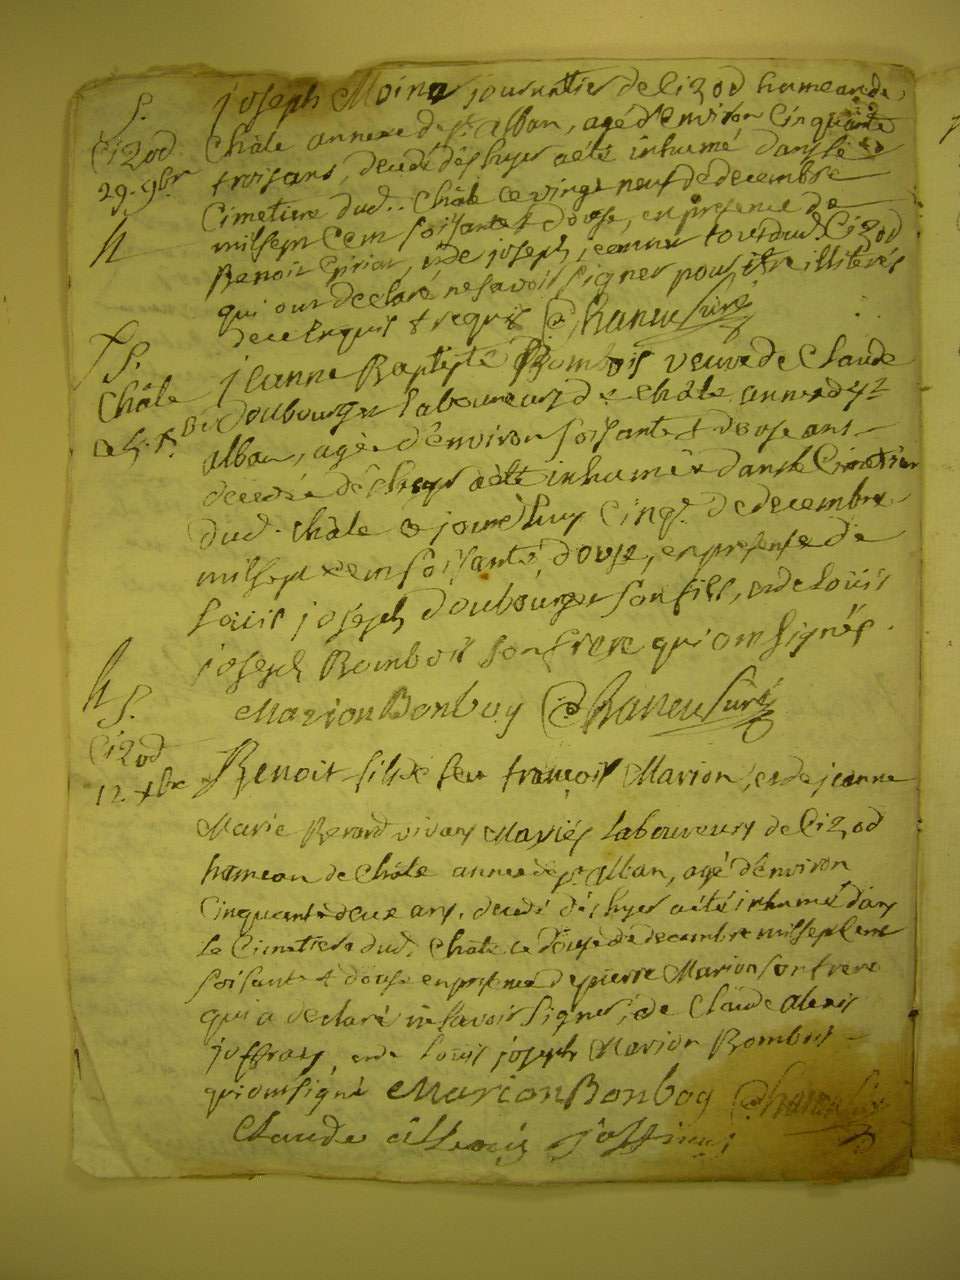 S.
Cizod
29. 9bre
joseph Moinr journalier de Cizod hameau de
Châle annexe de st. alban, agé d'Environ Cinquante
trois ans, decedé dès hyer a eté inhumé dans le
Cimetiere dud.. Châle ce vingt neuf de decembre
mil sept Cent soissante & douse, en presence de
Benoit et de joseph dud. Cizod
qui ont declaré ne savoir signer pour être illiterés
de ce Enquis & requis Chaneu Curé
S.
Châle
jeanne Baptiste Bombois veuve de Claude
Doubourger laboureur de Châle annexe de st
alban, agée d'environ soisante & douse ans
decedée dès hyer a eté inhumée dans le Cimetiere
dud. Châle ce jourd'huy Cinq. de decembre
mil sept cent soisante douse, en presence de
Louis joseph Doubourger son fils, et de Loüis
joseph Bombois son frere qui ont signés.
Marion Bonboy Chaneu Curé
S.
Cizod
12. xbre
Benoit fils de feu françois Marion, et de jeanne
Marie Berard vivans Mariés laboureurs de Cizod
hameau de Châle annexe de st. alban, agé d'Environ
Cinquante deux ans, decedé dès hyer a eté inhumé dans
Le Cimetiere dud. Châle ce douse de decembre mil sept Cent
soisante & douse en presence de pierre Marion son frere
qui a declaré ne savoir signer, de Claude alexis
joffray et de Louis joseph Marion Bombois
qui ont signé Marion Bonboy Chaneu Curé
Claude